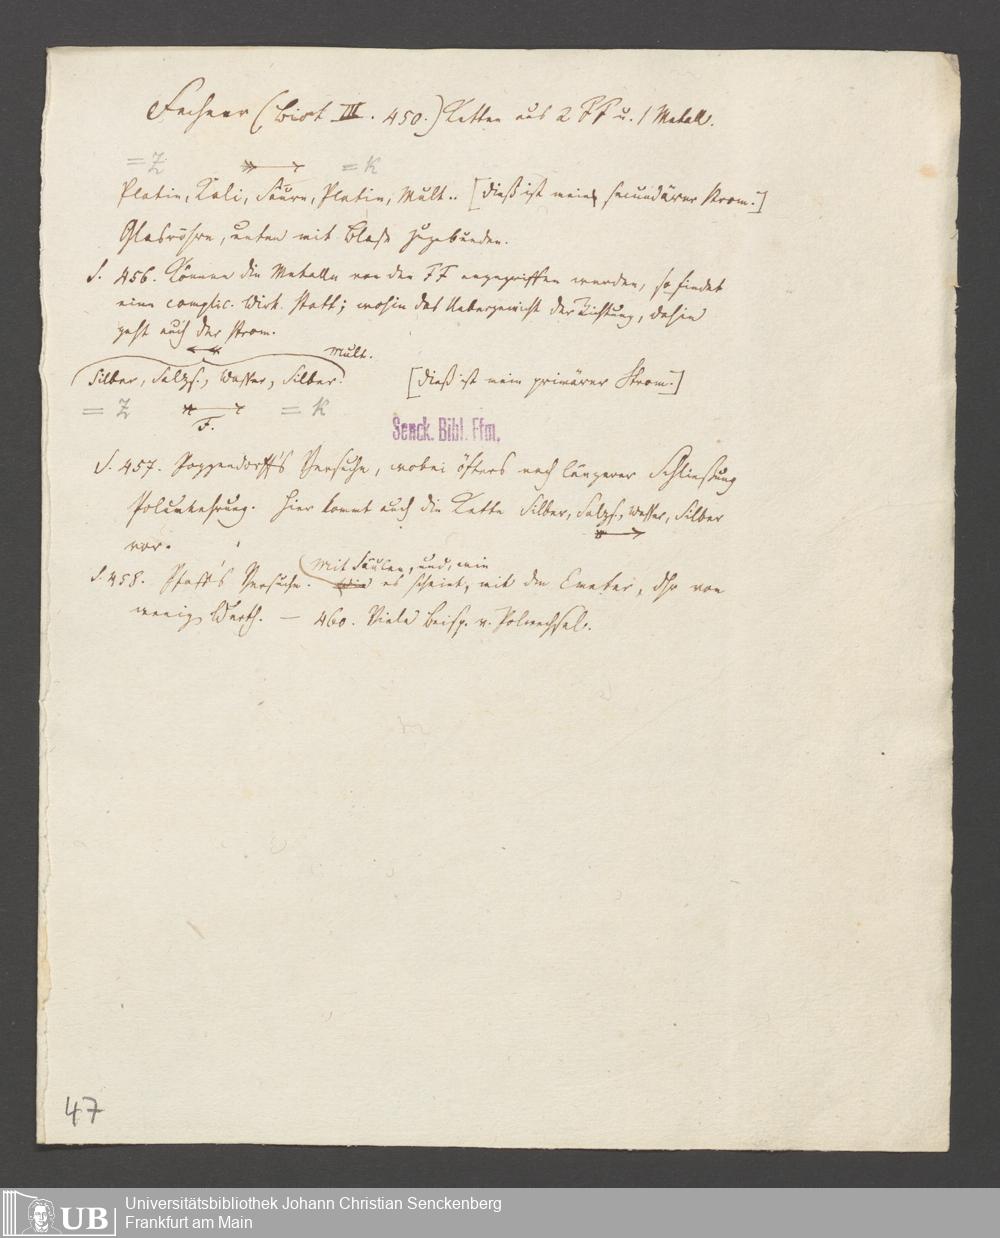 Fechner (Biot III. 450.) Ketten aus 2 FF u. 1 Metall.
= Z = K
Platin, Kali, Säure, Platin, Mult.. [Dieß ist mein secundärer Strom.]
Glasröhre, unten mit Blase zugebunden.
S. 456. Können die Metalle von den FF angegriffen werden, so findet
eine complic. Wirk. statt; wohin das Uebergewicht der Richtung, dahin
geht auch der Strom.
Mult.
Silber, Salzs., Wasser, Silber. [Dieß ist mein primärer Strom.]
= Z = K
F.
Senck. Bibl. Ffm.
S. 457. Poggendorff's Versuche, wobei öfters nach längerer Schließung
Polumkehrung. Hier kommt auch die Kette Silber, Salzs., Wasser, Silber
vor.
mit Säulen, und, wie
S. 458. Pfaff's Versuche. es scheint, mit dem Condensator, daher von
wenig Werth. — 460. Viele Beisp. v. Polwechsel.
47
UB
Universitätsbibliothek Johann Christian Senckenberg
Frankfurt am Main